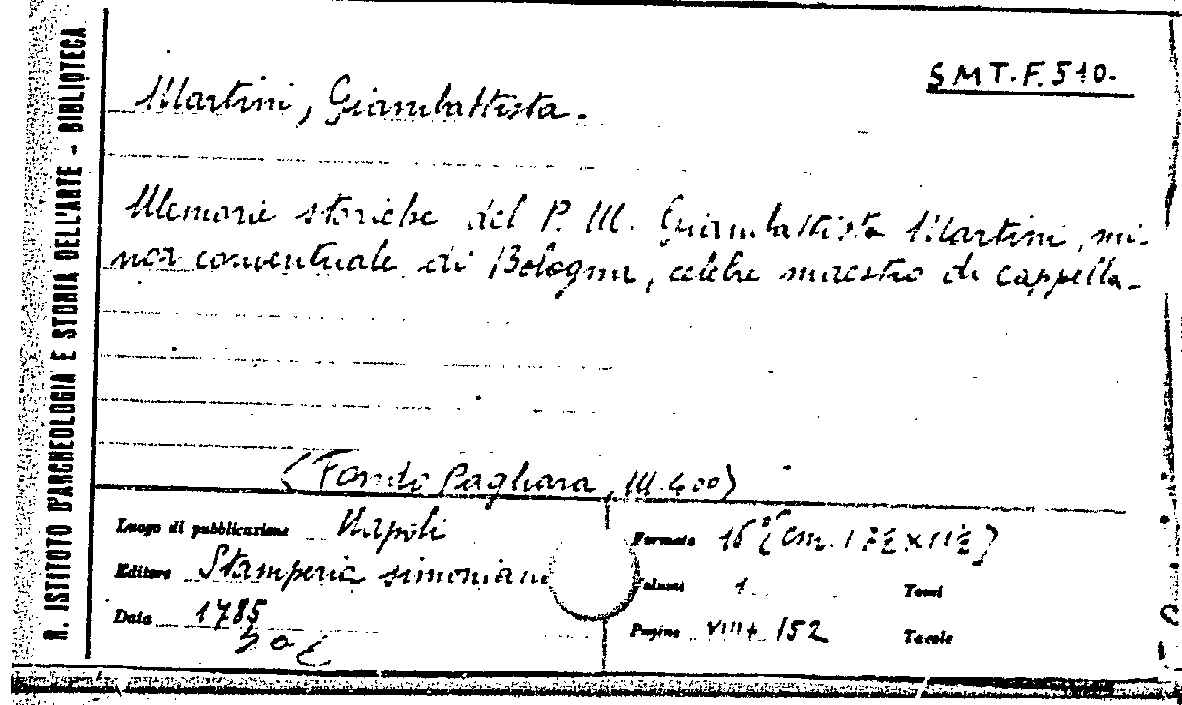 R. ISTITUTO D'ARCHEOLOGIA E STORIA DELL'ARTE - BIBLIOTECA
SMT.F.510.
Martini, Giambattista.
Memorie storiche del P. M. Giambattista Martini, mi-
nor conventuale di Bologna, celebre maestro di cappella.
(Fondo Pagliara, III.400)
Luogo di pubblicazione Napoli
Formato 16° (cm. 17½ x 11½)
Editore Stamperia simoniana
Volumi 1 Tomi
Data 1785
Pagine VIII+152 Tavole